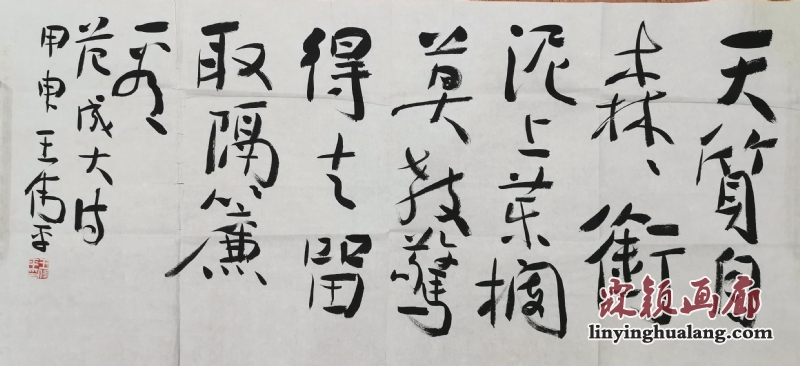 天質自
森森銜
泥上藥欄
莫教驚
得去留
取隔簾
看
范成大诗
甲申 王
霖颖画廊
linyinghualang.com